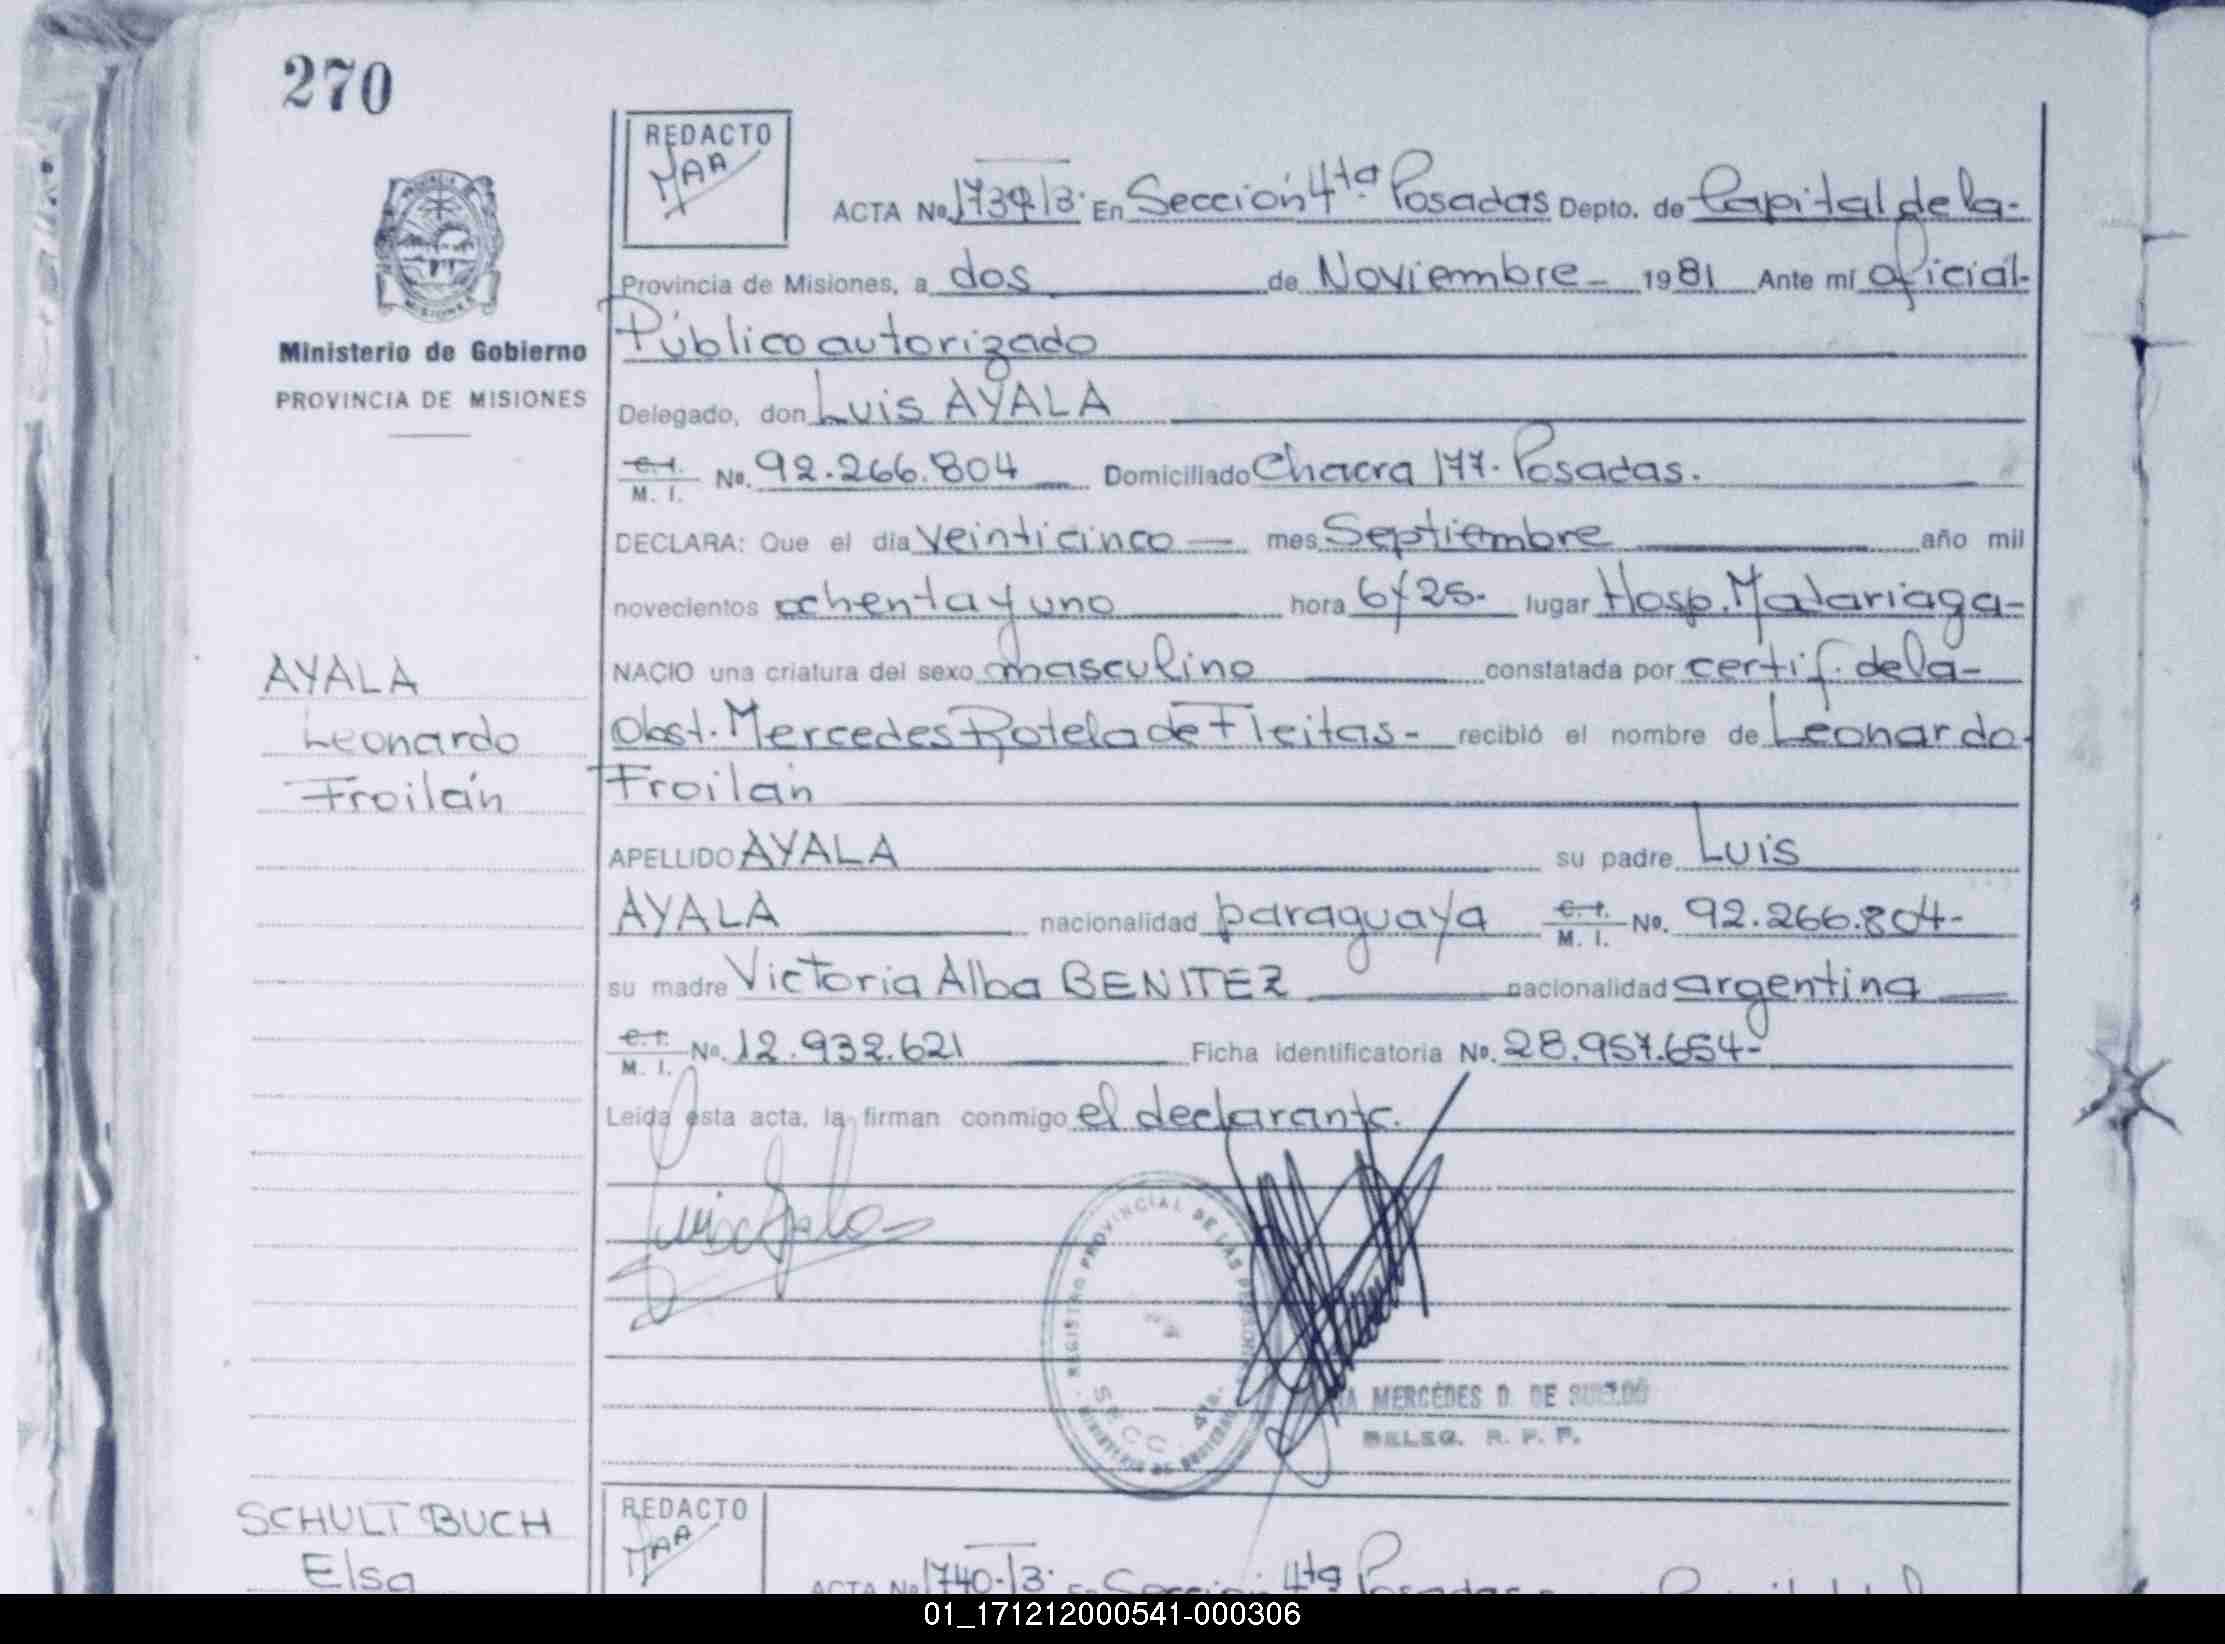 270
REDACTO
MAA
ACTA No. 1739/3. En Sección 4ta. Posadas Depto. de Capital de la-
Provincia de Misiones, a dos de Noviembre - 1981 Ante mí oficial-
Público autorizado
Ministerio de Gobierno
PROVINCIA DE MISIONES
Delegado, don Luis AYALA
C.I. M. I. No. 92.266.804 Domiciliado Chacra 177. Posadas.
DECLARA: Que el día veinticinco — mes Septiembre año mil
novecientos ochenta y uno hora 6y25. lugar Hosp. Madariaga-
AYALA
Leonardo
Froilán
NACIO una criatura del sexo masculino constatada por certif. de la-
Obst. Mercedes Rotela de Fleitas- recibió el nombre de Leonardo-
Froilán
APELLIDO AYALA su padre Luis
AYALA nacionalidad paraguaya C.I. M. I. No. 92.266.804-
su madre Victoria Alba BENITEZ nacionalidad argentina
C.I. M. I. No. 12.932.621 Ficha identificatoria No. 28.957.654-
Leída esta acta, la firman conmigo el declarante.
REGISTRO PROVINCIAL DE LAS PERSONAS
SECC. 4ta.
MINISTERIO DE GOBIERNO
MERCEDES D. DE SUELDO
DELEG. R. P. P.
SCHULT BUCH
Elsa
REDACTO
MAA
ACTA No. 1740-/3. En Sección 4ta Posadas
01_171212000541-000306